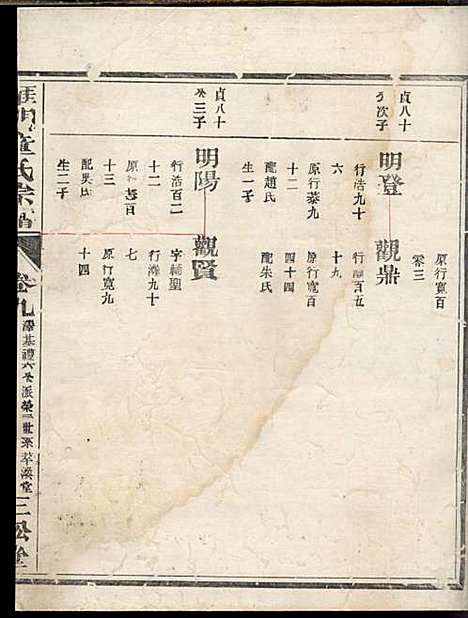 原行寬百
零三
貞八十
次子
明登
行浩九十
六
原行泰九
十二
配趙氏
生一子
觀鼎
行百五
十九
原行寬百
四十四
配朱氏
貞八十
三子
明陽
行浩百二
十二
原行百
十三
配吳氏
生二子
觀賢
字輔聖
行九十
七
原行寬九
十四
氏宗譜
卷九
三松堂